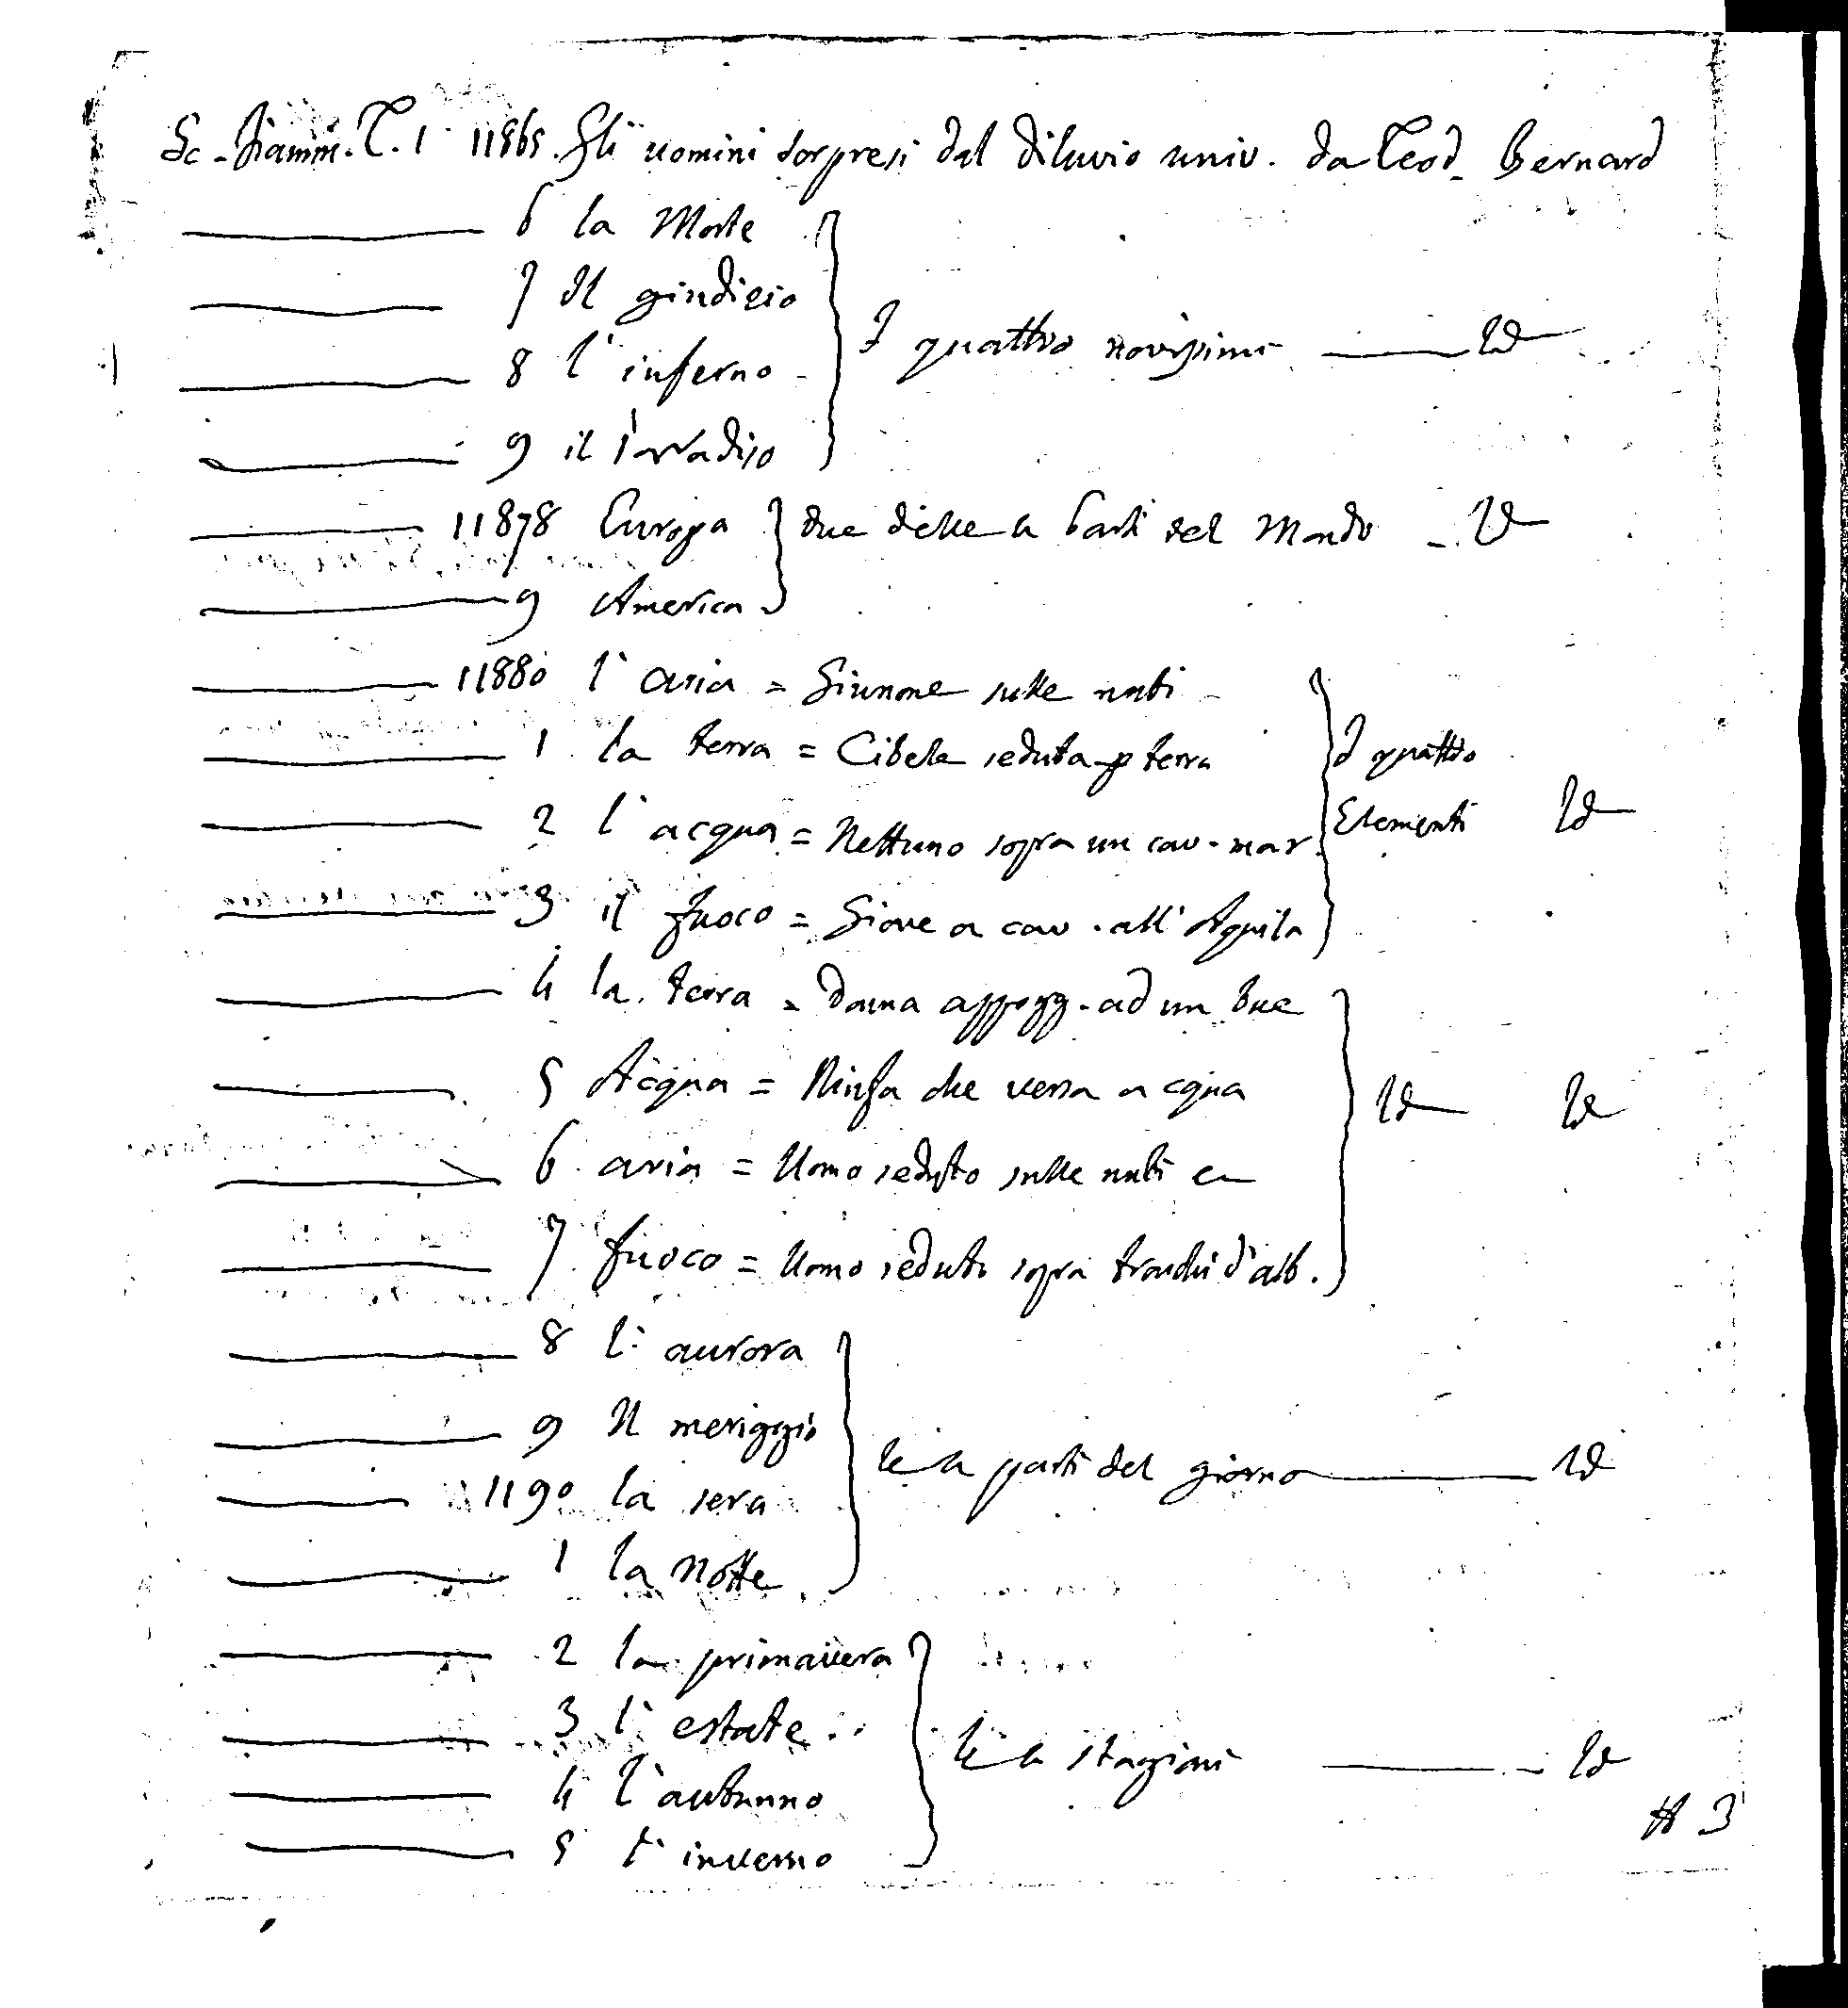 Sc. Fiamm. T. 1 11865. Gli uomini sorpresi dal diluvio univ. da Teod. Bernard
6 la Morte
7 Il giudizio
8 l'inferno
I quattro novissimi Id
9 il Parradiso
11878 Europa due delle 4 Parti del Mondo Id
9 America
11880 l'aria = Giunone sulle nubi
1 la terra = Cibele seduta p terra I quattro
2 l'acqua = Nettuno sopra un cav. mar. Elementi Id
3 il fuoco = Giove a cav. all'Aquila
4 la terra = Donna appogg. ad un bue
5 Acqua = Ninfa che versa acqua Id Id
6 aria = Uomo seduto sulle nubi
7 fuoco = Uomo seduto sopra tronchi d'alb.
8 l'aurora
9 Il meriggio
le 4 parti del giorno Id
1190 la sera
1 la Notte
2 la primavera
3 l'estate
le 4 stagioni Id
4 l'autunno
5 l'inverno
3